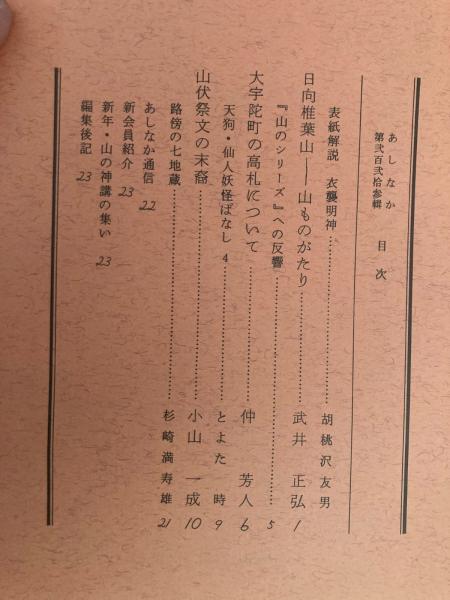 あしなか
第弐百弐拾参輯
目次
表紙解説 衣襲明神……胡桃沢友男
日向椎葉山——山ものがたり……武井 正弘 1
『山のシリーズ』への反響……5
大宇陀町の高札について……仲 芳人 6
天狗・仙人妖怪ばなし 4……とよた 時 9
山伏祭文の末裔……小山 一成 10
路傍の七地蔵……杉崎満寿雄 21
あしなか通信 22
新会員紹介 23
新年・山の神講の集い 23
編集後記 23